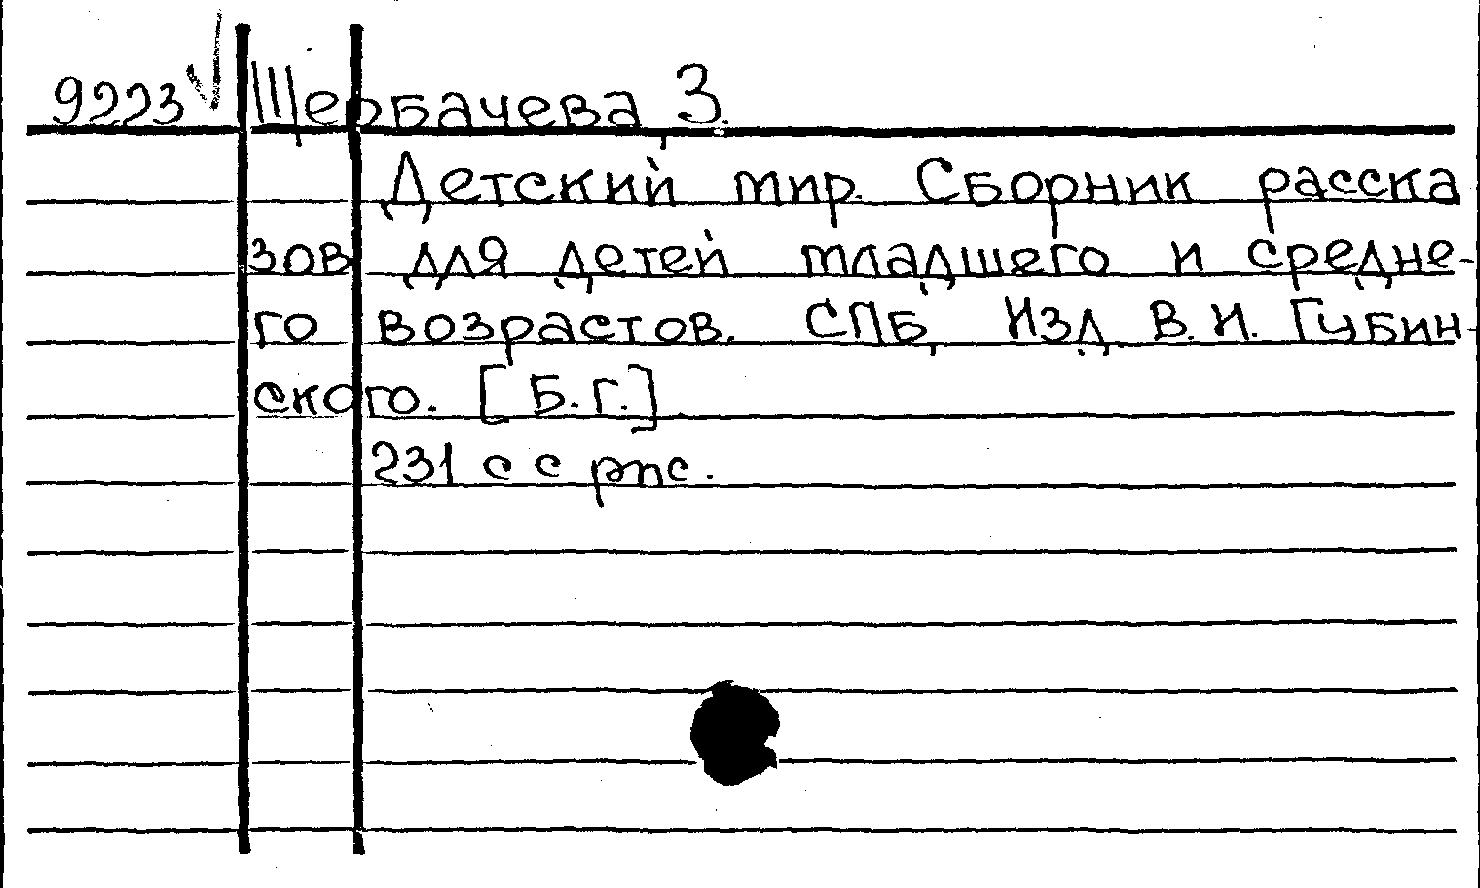 9223 Щербачева, З.
Детский мир. Сборник расска
зов для детей младшего и средне-
го возрастов. СПБ, Изд. В. И. Губин-
ского. [Б.г.]
231 с с рис.